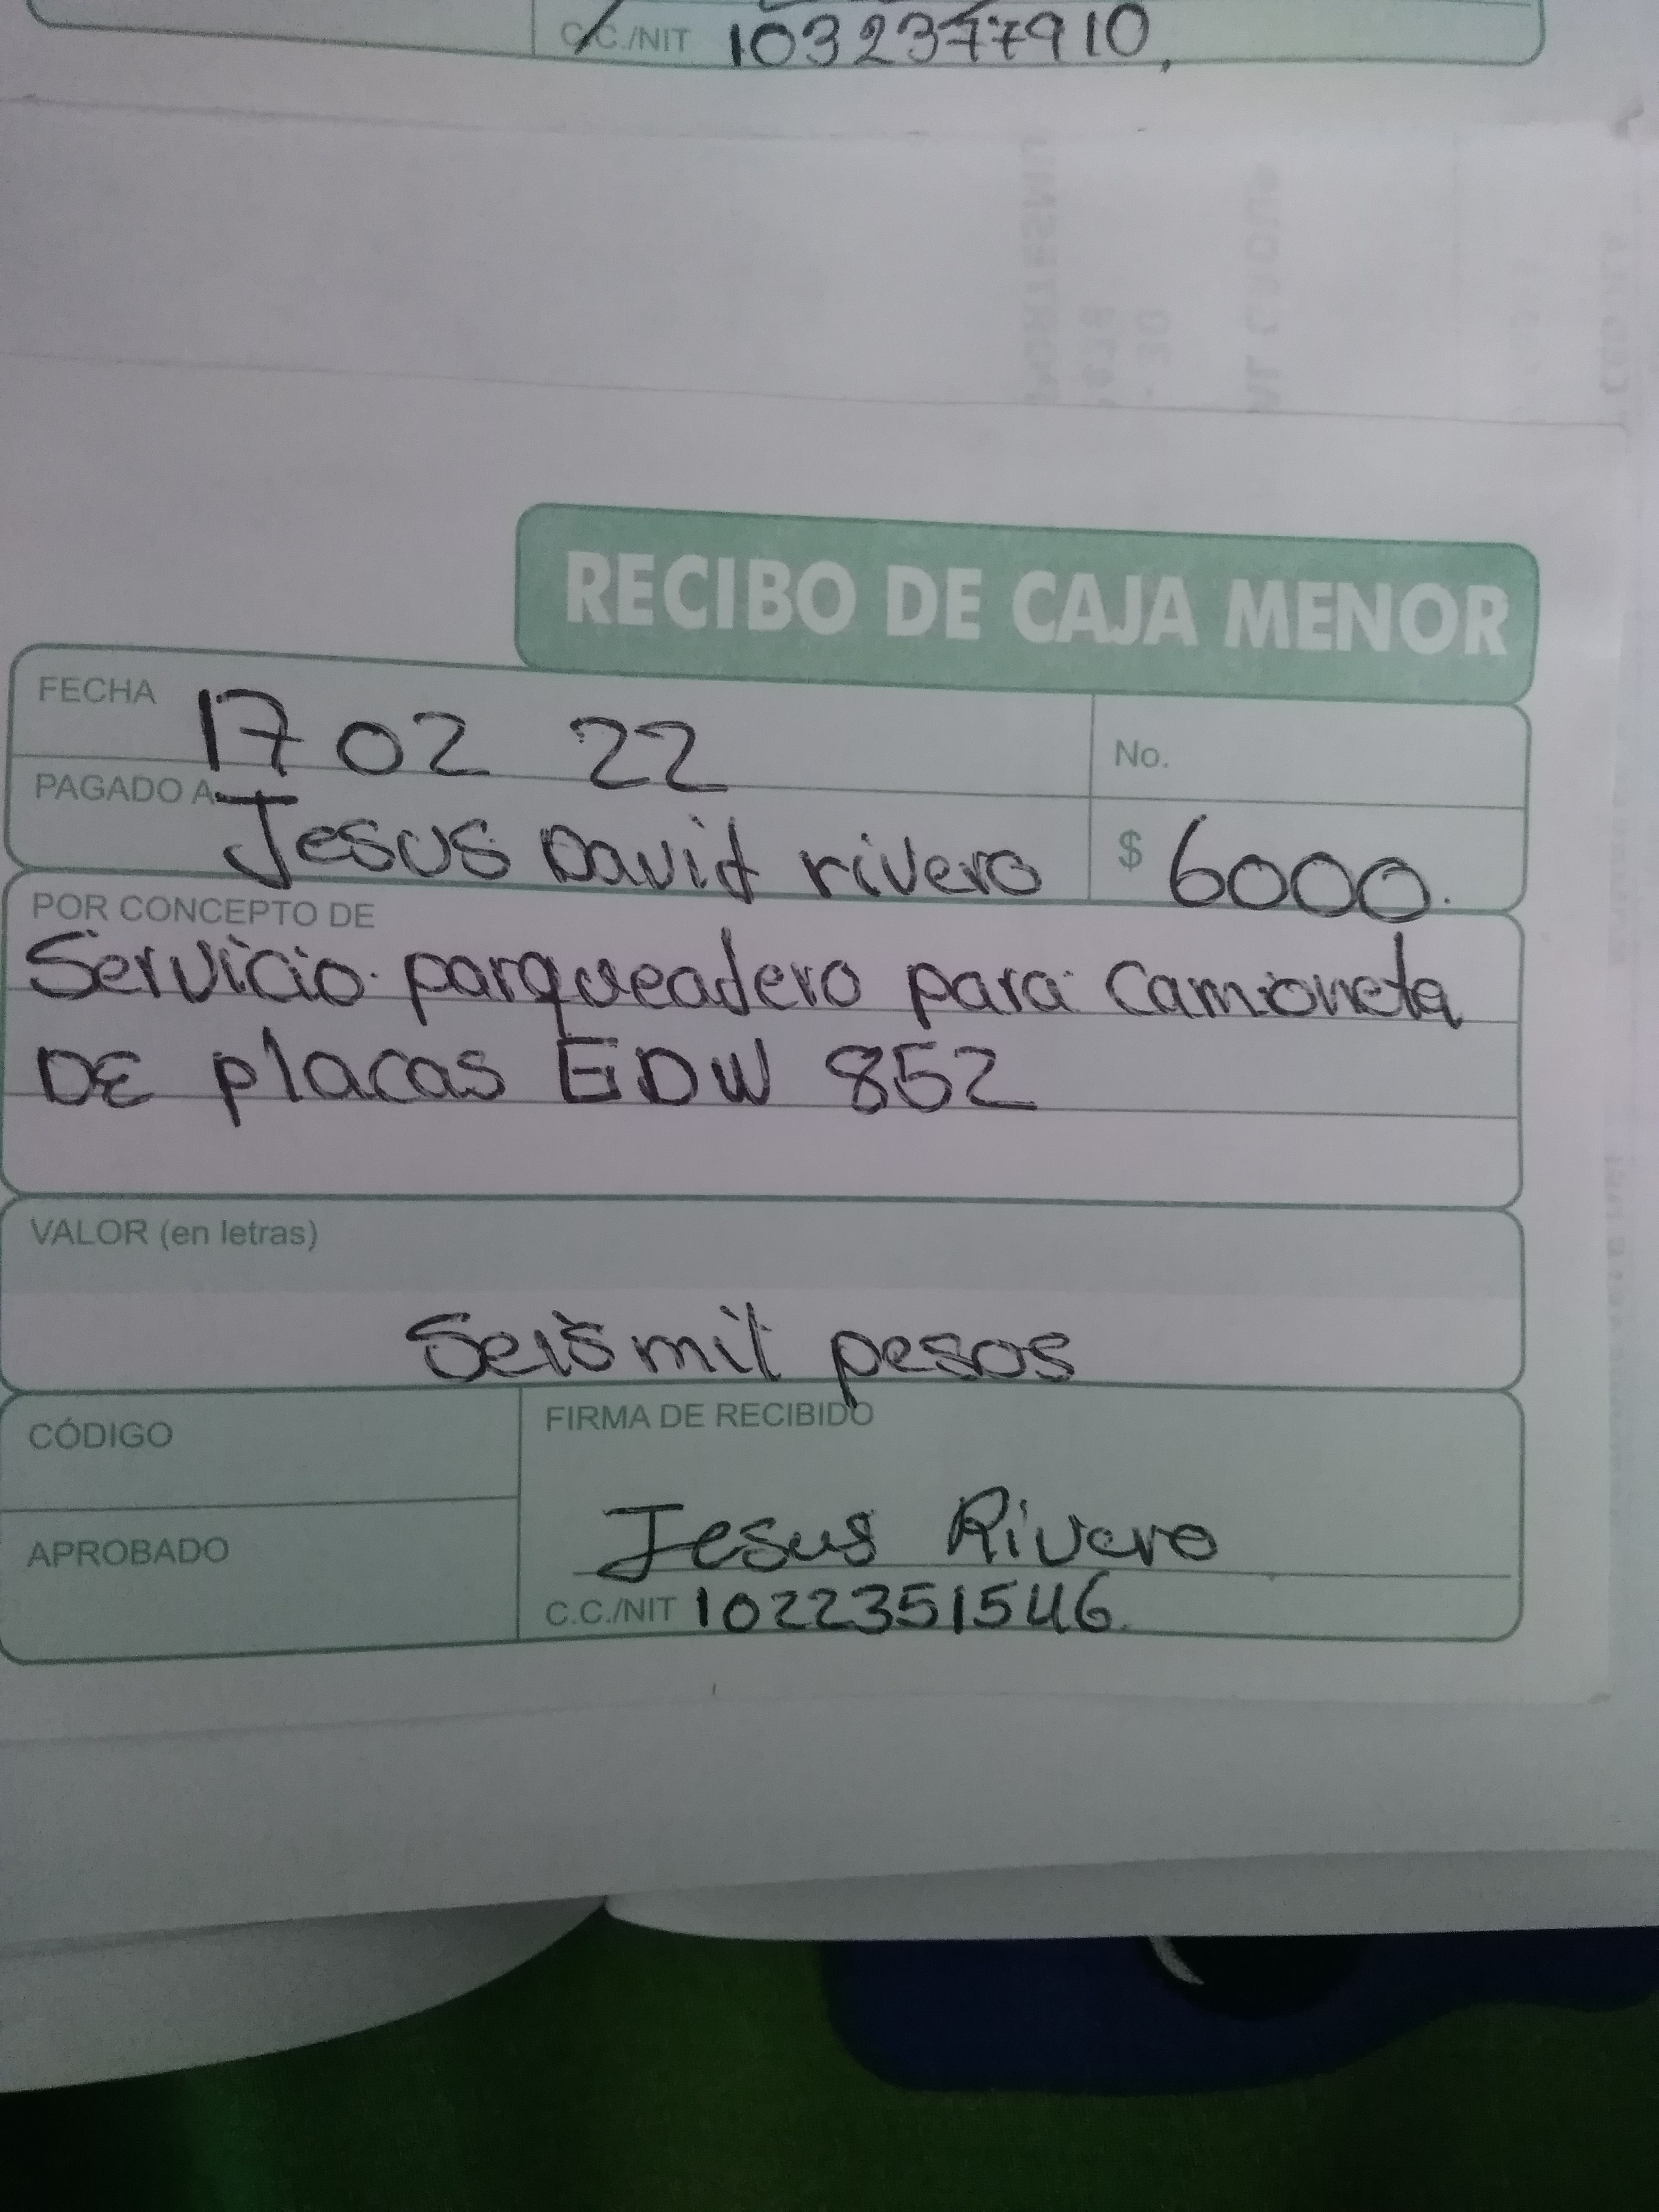 C.C./NIT 1032377910
RECIBO DE CAJA MENOR
FECHA 17 02 22
No.
PAGADO A Jesus David rivero
$ 6000
POR CONCEPTO DE
Servicio parqueadero para camioneta
DE placas EDW 852
VALOR (en letras)
Seis mil pesos
CÓDIGO
FIRMA DE RECIBIDO
Jesus Rivero
APROBADO
C.C./NIT 1022351546